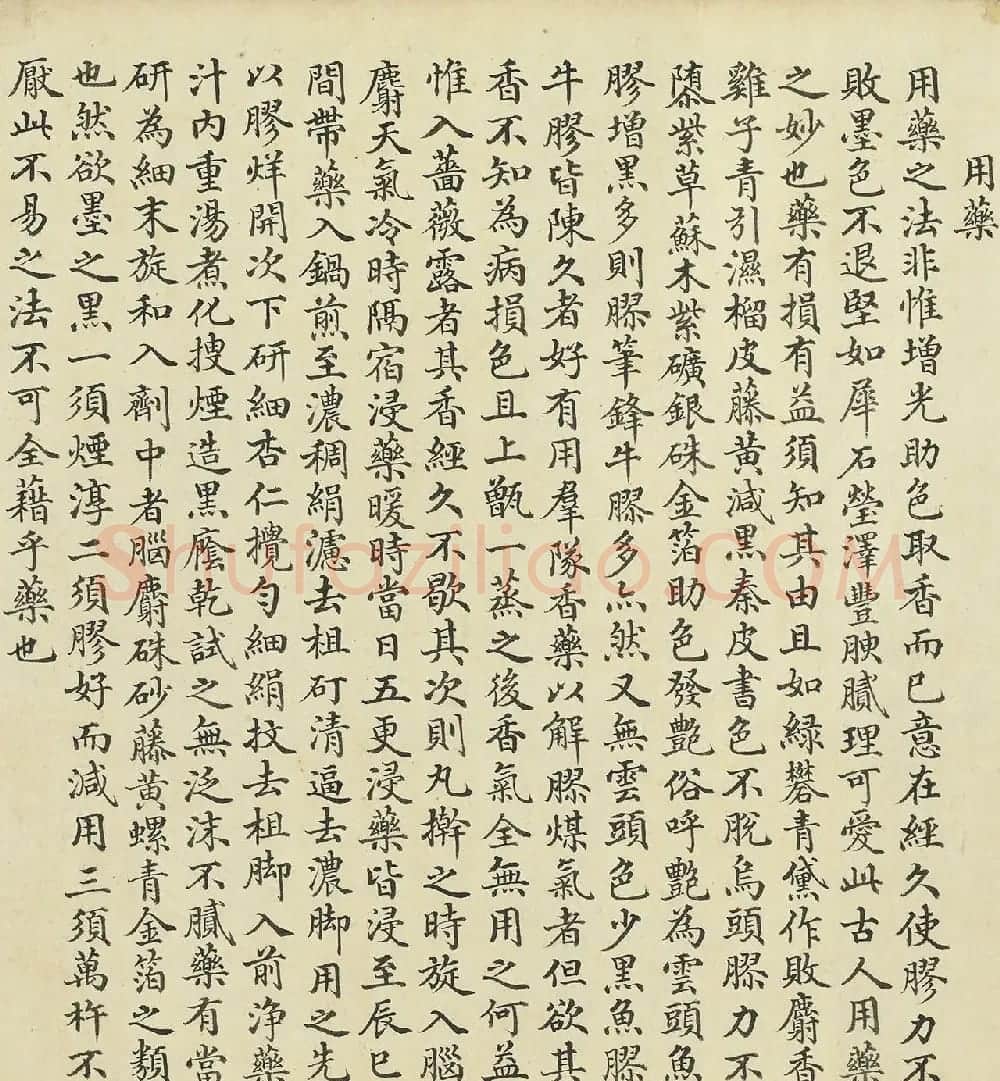 用藥
用藥之法非惟增光助色取香而已意在經久使膠力不
敗墨色不退堅如犀石瑩澤豐腴膩理可愛此古人用藥
之妙也藥有損有益須知其由且如綠礬青黛作敗麝香
雞子青引濕榴皮藤黃減黑秦皮書色不脫烏頭膠力不
隳紫草蘇木紫礦銀硃金箔助色發艷俗呼艷為雲頭魚
膠增黑多則膠筆鋒牛膠多亦然又無雲頭色少黑魚膠
牛膠皆陳久者好有用羣隊香藥以解膠煤氣者但欲其
香不知為病損色且上甑一蒸之後香氣全無用之何益
惟入薔薇露者其香經久不歇其次則丸擀之時旋入腦
麝天氣冷時隔宿浸藥暖時當日五更浸藥皆浸至辰巳
間帶藥入鍋煎至濃稠絹濾去柤矴清逼去濃脚用之先
以膠烊開次下研細杏仁攪勻細絹挍去柤脚入前淨藥
汁內重湯煮化搜煙造黑廕乾試之無泛沫不膩藥有當
研為細末旋和入劑中者腦麝硃砂藤黃螺青金箔之類
也然欲墨之黑一須煙淳二須膠好而減用三須萬杵不
厭此不易之法不可全藉乎藥也
Shufaziliao.COM